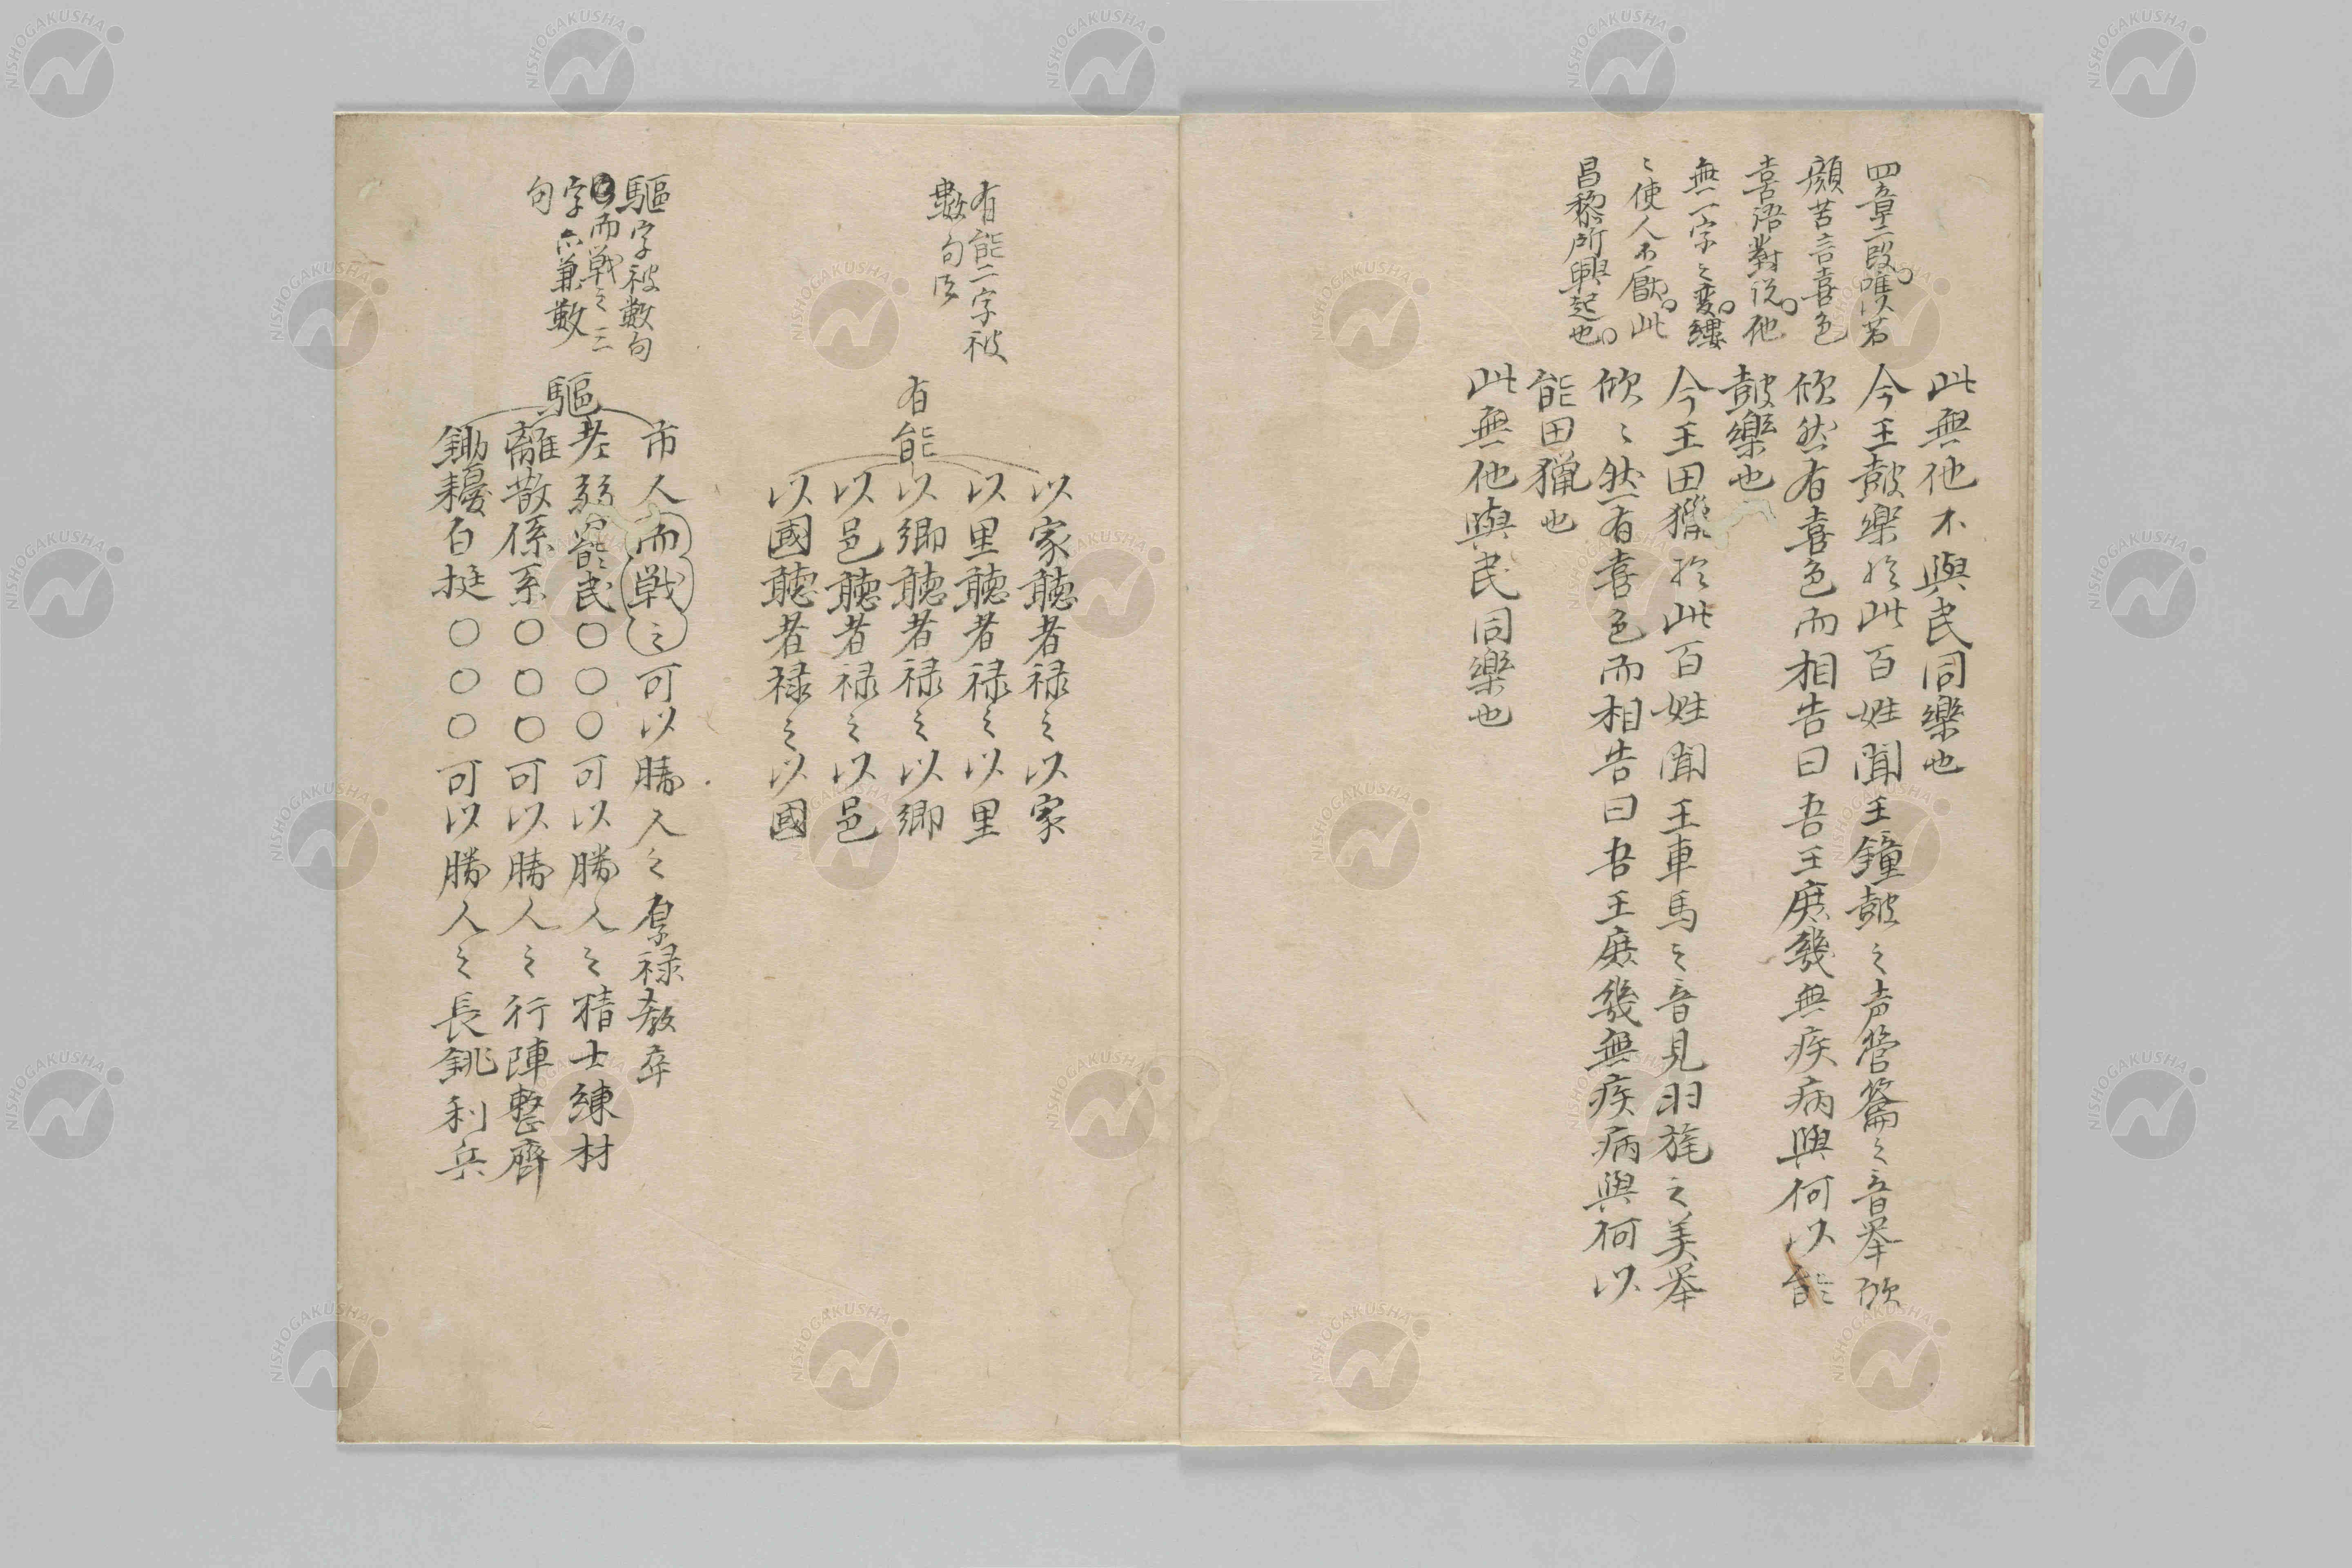 四章二段。唯以苦
顔苦言喜色
喜語對說。他
無一字之変。縷
〻使人不厭。此
昌黎所興起也。
此無他不與民同樂也
今王鼓樂於此百姓聞王鐘鼓之声管籥之音舉欣
欣然有喜色而相告曰吾王庶幾無疾病與何以能
鼓樂也
今王田獵於此百姓聞王車馬之音見羽旄之美舉
欣〻然有喜色而相告曰吾王庶幾無疾病與何以
能田猟也
此無他與民同樂也
有能二字被
數句法
有能
以家聽者禄之以家
以里聽者禄之以里
以鄉聽者禄之以鄉
以邑聽者禄之以邑
以國聽者禄之以國
驅字被數句
而戦之三
字亦兼數
句
驅
市人而戦之可以勝人之厚禄教卒
老弱罷民〇〇〇可以勝人之精士練材
離散係系〇〇〇可以勝人之行陣整齊
鋤耰白挺〇〇〇可以勝人之長銚利兵
NISHOGAKUSHA